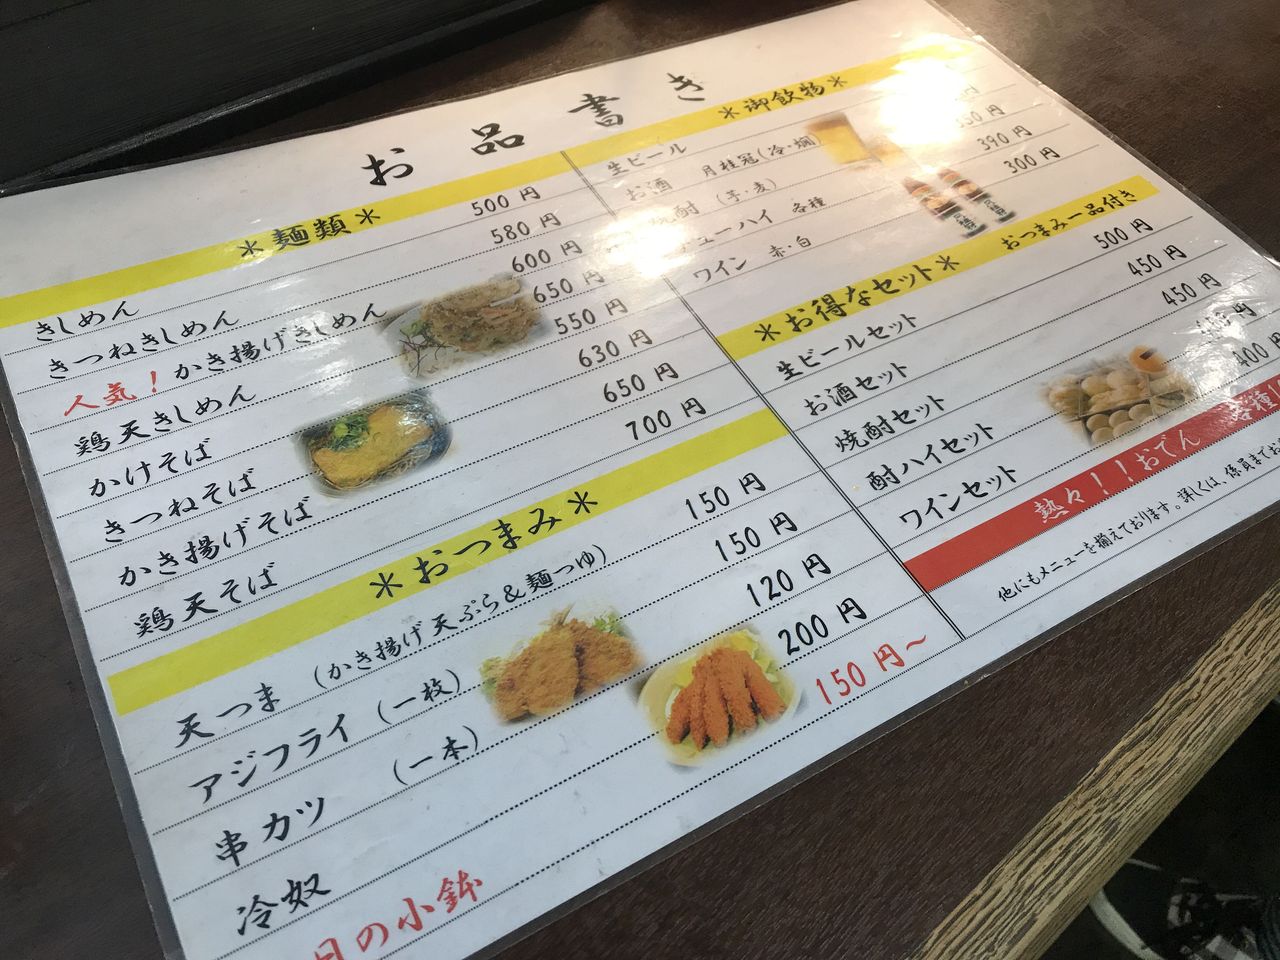 お品書き
＊麺類＊
きしめん 500 円
きつねきしめん 580 円
人気！かき揚げきしめん 600 円
鶏天きしめん 650 円
かけそば 550 円
きつねそば 630 円
かき揚げそば 650 円
鶏天そば 700 円
＊おつまみ＊
天つま （かき揚げ天ぷら＆麺つゆ） 150 円
アジフライ（一枚） 150 円
串カツ （一本） 120 円
冷奴 200 円
日の小鉢 150 円～
＊御飲物＊
生ビール
お酒 月桂冠（冷・燗）
酎 （芋・麦） 350 円
ューハイ 各種 390 円
ワイン 赤・白 300 円
＊お得なセット＊ おつまみ一品付き
生ビールセット 500 円
お酒セット 450 円
焼酎セット 450 円
酎ハイセット 円
ワインセット 400 円
熱々！！おでん 各種
他にもメニューを揃えております。詳しくは、係員まで